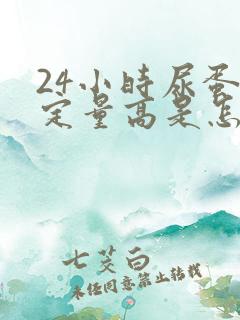 24小时尿蛋
定量高是怎
七茭白
未经同意禁止转载